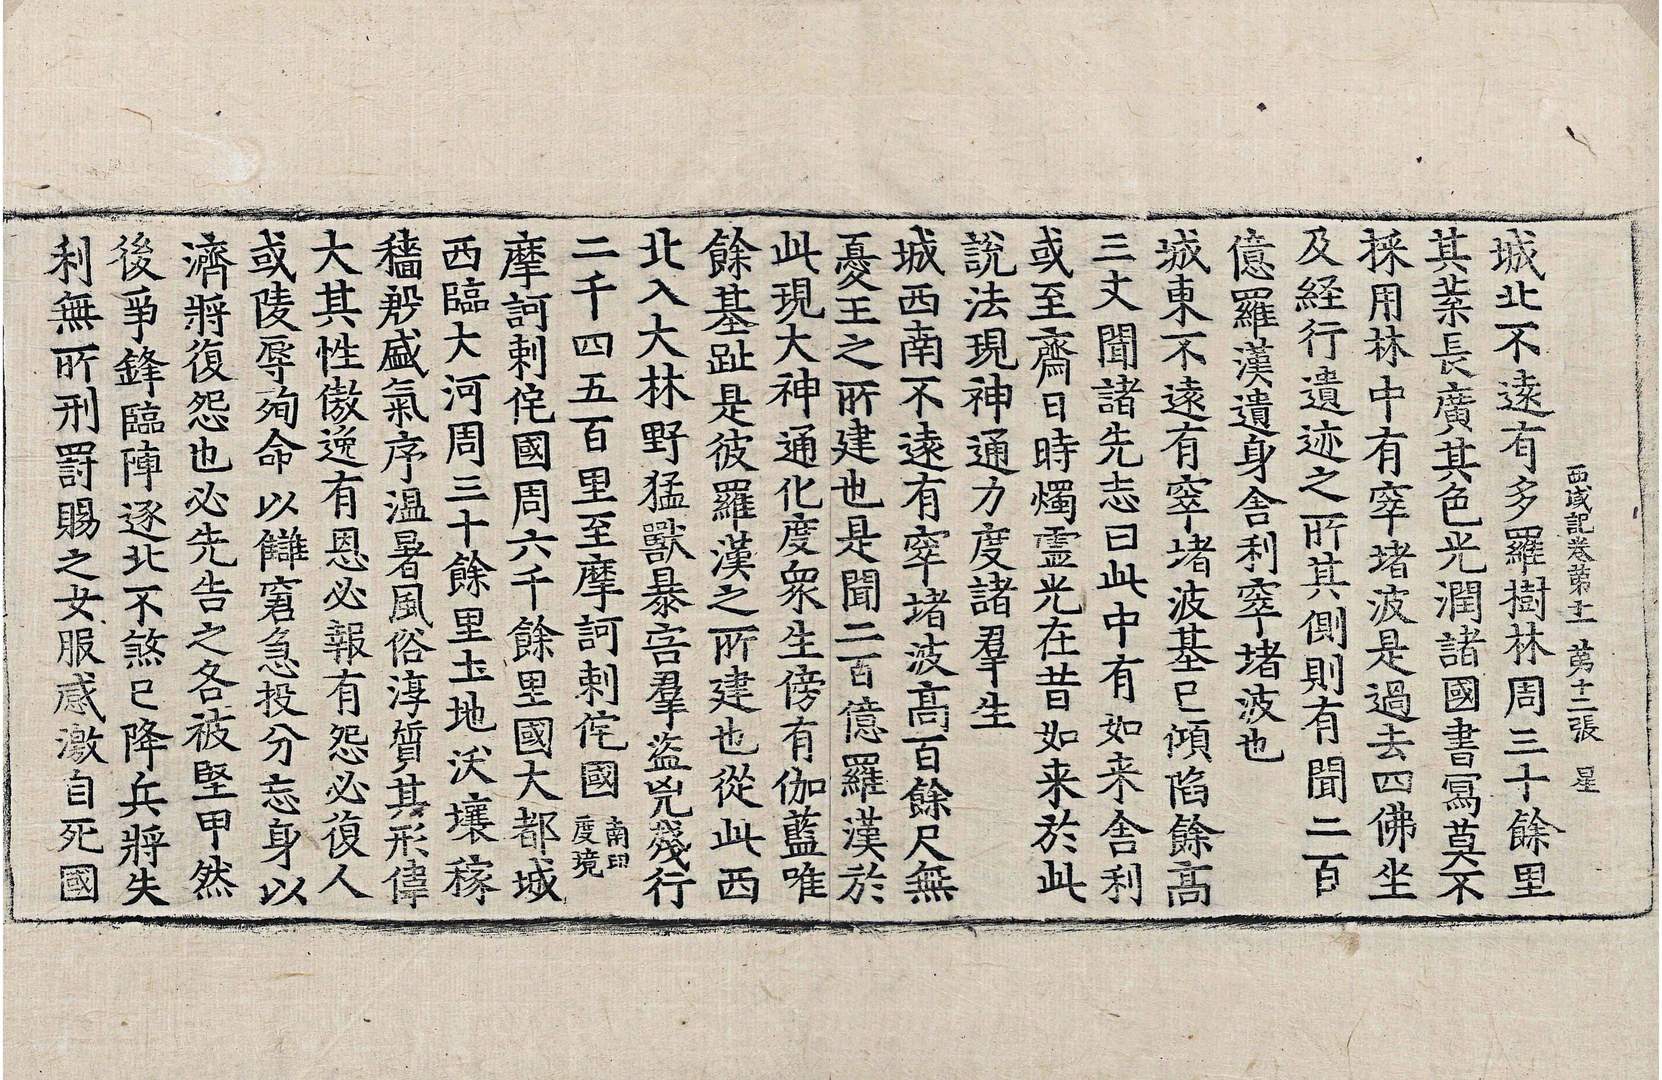 西域記卷第十一 第十二張 星
城北不遠有多羅樹林周三十餘里
其葉長廣其色光潤諸國書寫莫不
採用林中有窣堵波是過去四佛坐
及経行遺迹之所其側則有聞二百
億羅漢遺身舍利窣堵波也
城東不遠有窣堵波基已傾陷餘高
三丈聞諸先志曰此中有如来舍利
或至齋日時燭霊光在昔如来於此
說法現神通力度諸羣生
城西南不遠有窣堵波高百餘尺無
憂王之所建也是聞二百億羅漢於
此現大神通化度衆生傍有伽藍唯
餘基趾是彼羅漢之所建也從此西
北入大林野猛獸暴害羣盜兇殘行
二千四五百里至摩訶剌侘國南印度境
摩訶剌侘國周六千餘里國大都城
西臨大河周三十餘里土地沃壤稼
穡殷盛氣序温暑風俗淳質其形偉
大其性傲逸有恩必報有怨必復人
或陵辱殉命以讎窘急投分忘身以
濟將復怨也必先告之各被堅甲然
後爭鋒臨陣逐北不煞已降兵將失
利無所刑罰賜之女服感激自死國